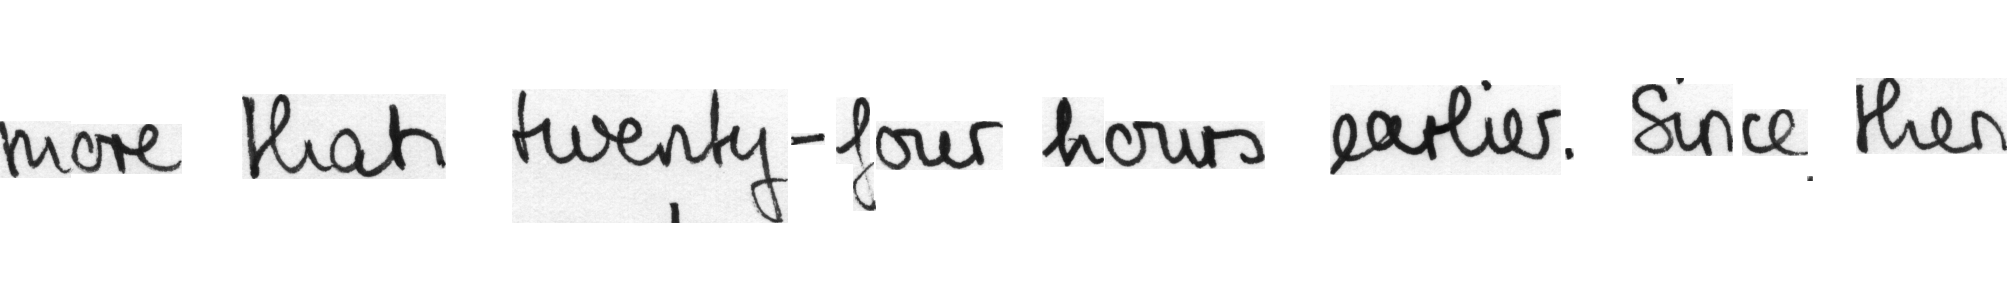 more than twenty-four hours earlier. Since then